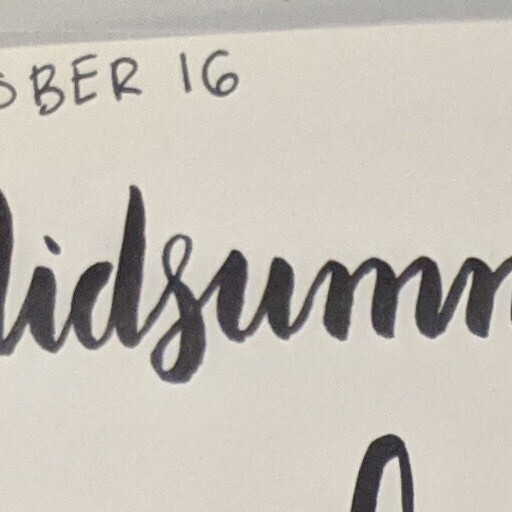 OBER 16
Midsumm